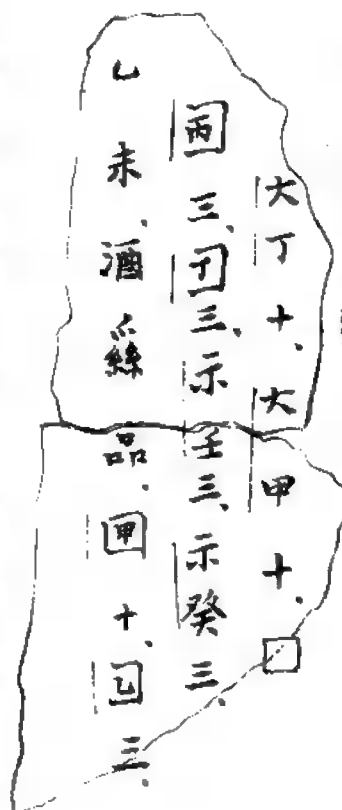 乙未、酒品、甲十、乙三、
丙三、丁三、示壬三、示癸三、
大丁十、大甲十、□